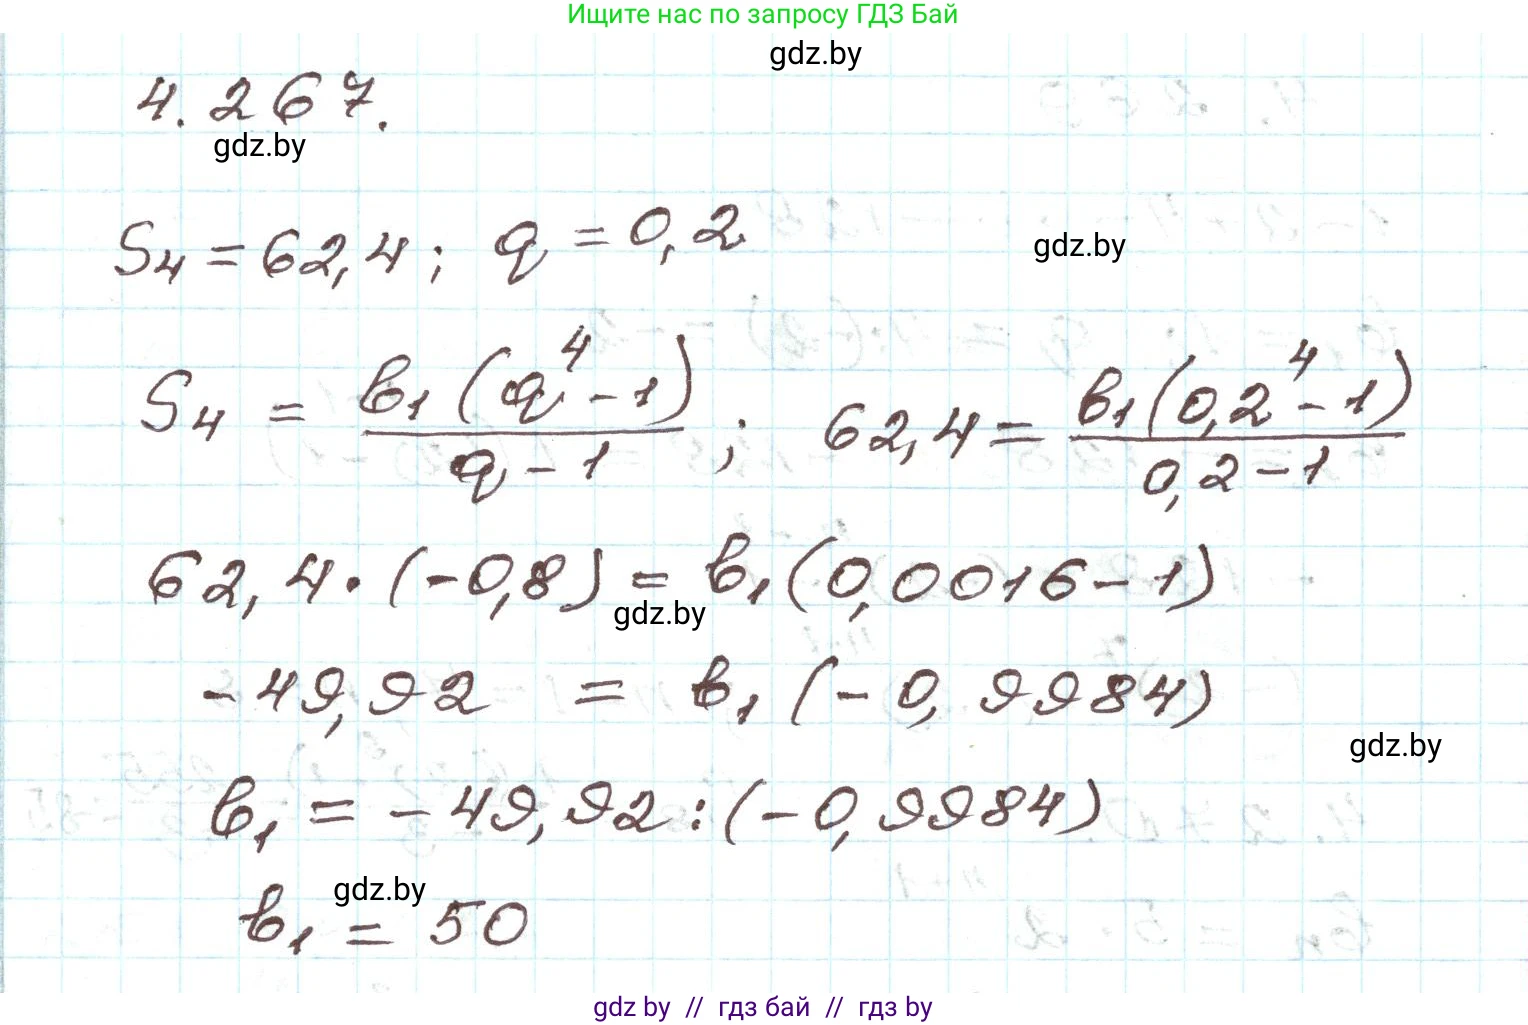 Ищите нас по запросу ГДЗ Бай
gdz.by
4.267.
gdz.by
S₄ = 62,4; q = 0,2
gdz.by
S₄ = b₁(q⁴ - 1) / (q - 1); 62,4 = b₁(0,2⁴ - 1) / (0,2 - 1)
62,4 · (-0,8) = b₁(0,0016 - 1)
gdz.by
-49,92 = b₁(-0,9984)
gdz.by
b₁ = -49,92 : (-0,9984)
gdz.by
b₁ = 50
gdz by // гдз бай // гдз by